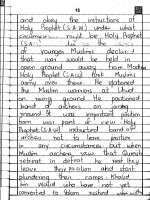 15
and obey the instructions of
Holy Prophet (S.A.W) under what
might be Holy Prophet
(S.A
of younger Muslims decline
that war would be held in
open ground away from Madina
Holy Prophet (S.A.W) took Muslims
army over there. He stationed
the Muslim warriors at Uhud
on rising ground. He positioned
band of archers on
ground. It was important position
from war point of view. Holy
Prophet (S.A.W) instructed band of
archers not to leave position
in any circumstances but when
Muslim archers saw that Quraish
retreat in defeat they
leave their position and start
plundering their camps. Khalid
bin Walid who have not yet
converted to Islam rushed